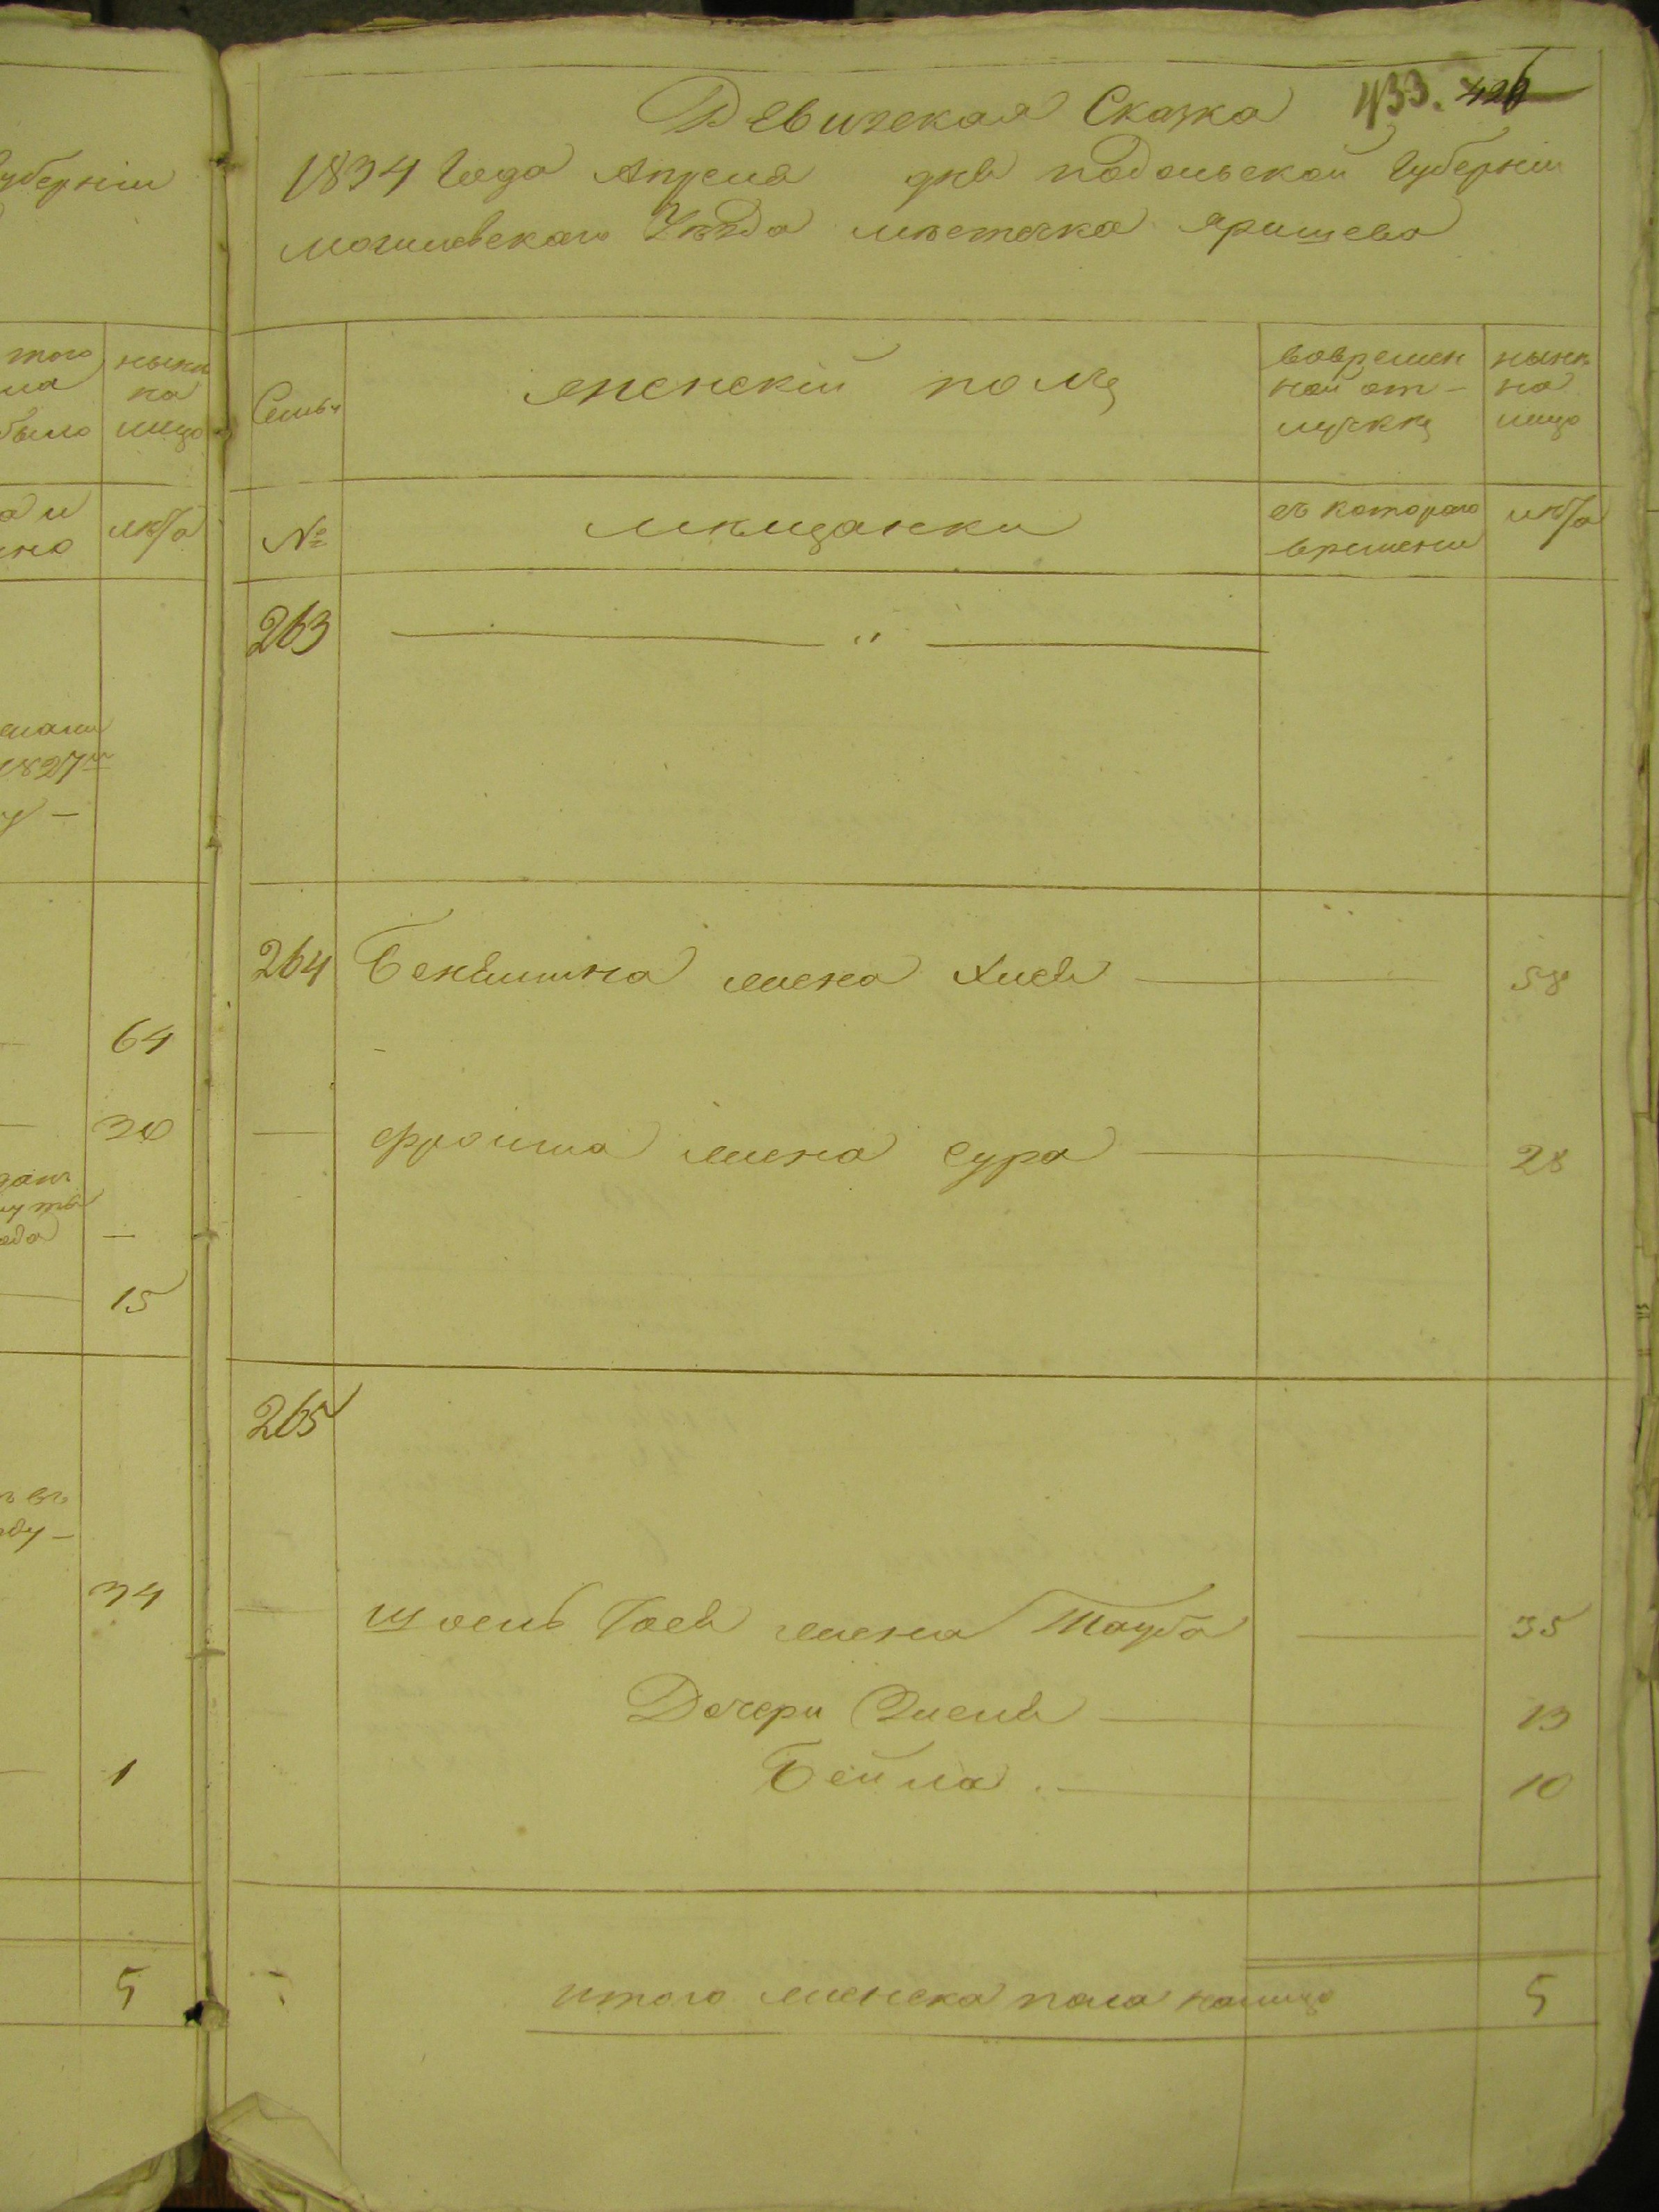 Ревизская Сказка 433. 426
1834 Года Апреля дня подольской Губернiи
могилевскаго Уѣзда мѣстечка яришева
Семьи
женскiй полъ
вовремен
ной от-
лучкѣ
нынѣ
на
лицо
№
мѣщанки
съ котораго
времени
лѣта
263 "
264 Беньямина жена Хися 58
Фроима жена Сура 28
265
жена Тауба 35
Дочери 13
Бейла 10
итого женска пола налицо 5
убернiи
того
было
нынѣ
на
лицо
лѣта
1827го
64
15
34
1
5